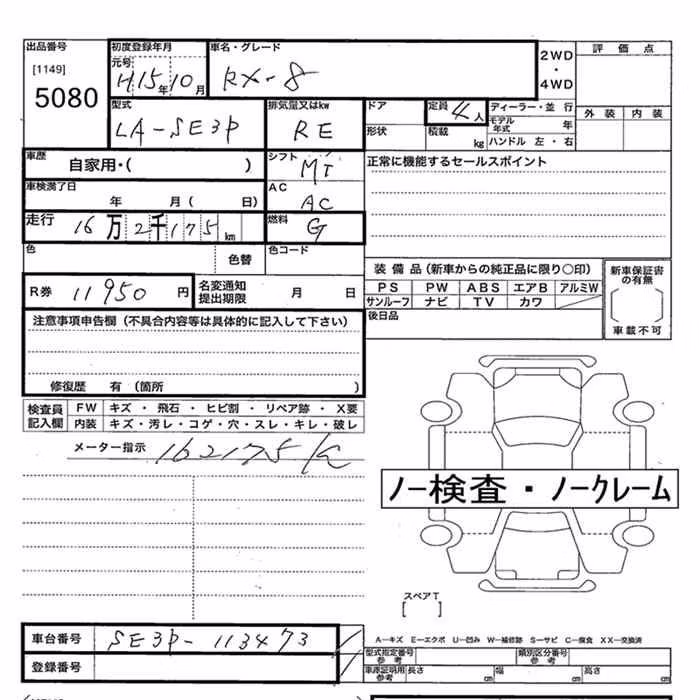 出品番号 初度登録年月 車名・グレード 2WD 評価点
[1149] 元号 H15年10月 RX-8 ・
5080 4WD
型式 排気量又はkw ドア 定員 4人 ディーラー・並行 外装 内装
LA-SE3P RE 形状 積載 kg モデル年式 年
ハンドル 左・右
車歴 自家用・( ) シフト MT 正常に機能するセールスポイント
車検満了日 年 月( 日) AC AC
走行 16万2千175km 燃料 G
色 色替 色コード
装備品(新車からの純正品に限り○印) 新車保証書の有無
R券 11950円 名変通知提出期限 月 日 PS PW ABS エアB アルミW
サンルーフ ナビ TV カワ 車載不可
注意事項申告欄(不具合内容等は具体的に記入して下さい) 後日品
修復歴 有(箇所 )
検査員記入欄 FW キズ・飛石・ヒビ割・リペア跡・X要
内装 キズ・汚レ・コゲ・穴・スレ・キレ・破レ
メーター指示 162175K
ノー検査・ノークレーム
スペアT
[ ]
車台番号 SE3P-113473 A-キズ E-エクボ U-凹み W-補修跡 S-サビ C-腐食 XX-交換済
登録番号 型式指定番号参考 類別区分番号参考
車庫証明用参考 長さ cm 幅 cm 高さ cm